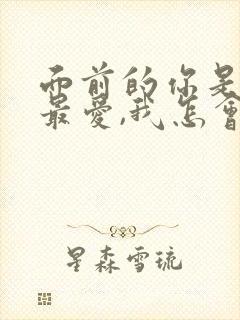 而前的你是
最爱,我怎會
星森雪琉